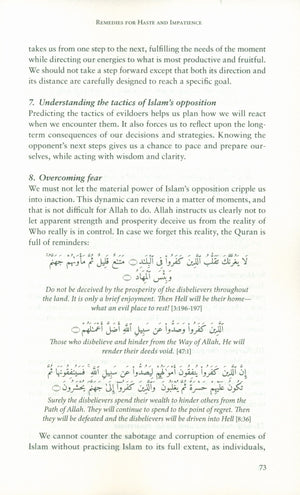 REMEDIES FOR HASTE AND IMPATIENCE
takes us from one step to the next, fulfilling the needs of the moment
while directing our energies to what is most productive and fruitful.
We should not take a step forward except that both its direction and
its distance are carefully designed to reach a specific goal.
7. Understanding the tactics of Islam's opposition
Predicting the tactics of evildoers helps us plan how we will react
when we encounter them. It also forces us to reflect upon the long-
term consequences of our decisions and strategies. Knowing the
opponent's next steps gives us a chance to pace and prepare our-
selves, while acting with wisdom and clarity.
8. Overcoming fear
We must not let the material power of Islam's opposition cripple us
into inaction. This dynamic can reverse in a matter of moments, and
that is not difficult for Allah to do. Allah instructs us clearly not to
let apparent strength and prosperity deceive us from the reality of
Who really is in control. In case we forget this reality, the Quran is
full of reminders:
لَا يَغُرَّنَّكَ تَقَلُّبُ الَّذِينَ كَفَرُوا فِي الْبِلَادِ ۝ مَتَاعٌ قَلِيلٌ ثُمَّ مَأْوَاهُمْ جَهَنَّمُ
وَبِئْسَ الْمِهَادُ ۝
Do not be deceived by the prosperity of the disbelievers throughout
the land. It is only a brief enjoyment. Then Hell will be their home—
what an evil place to rest! [3:196-197]
الَّذِينَ كَفَرُوا وَصَدُّوا عَن سَبِيلِ اللَّهِ أَضَلَّ أَعْمَالَهُمْ ۝
Those who disbelieve and hinder from the Way of Allah, He will
render their deeds void. [47:1]
إِنَّ الَّذِينَ كَفَرُوا يُنفِقُونَ أَمْوَالَهُمْ لِيَصُدُّوا عَن سَبِيلِ اللَّهِ فَسَيُنفِقُونَهَا ثُمَّ
تَكُونُ عَلَيْهِمْ حَسْرَةً ثُمَّ يُغْلَبُونَ وَالَّذِينَ كَفَرُوا إِلَىٰ جَهَنَّمَ يُحْشَرُونَ ۝
Surely the disbelievers spend their wealth to hinder others from the
Path of Allah. They will continue to spend to the point of regret. Then
they will be defeated and the disbelievers will be driven into Hell [8:36]
We cannot counter the sabotage and corruption of enemies of
Islam without practicing Islam to its full extent, as individuals,
73